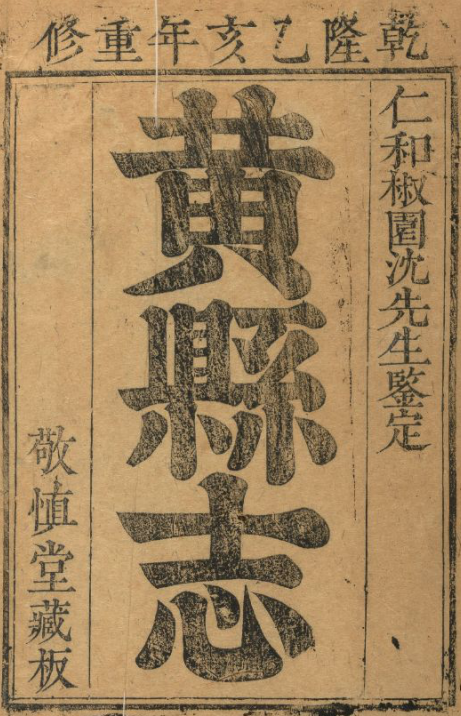 乾隆乙亥年重修
仁和椒園沈先生鑒定
黃縣志
敬慎堂藏板